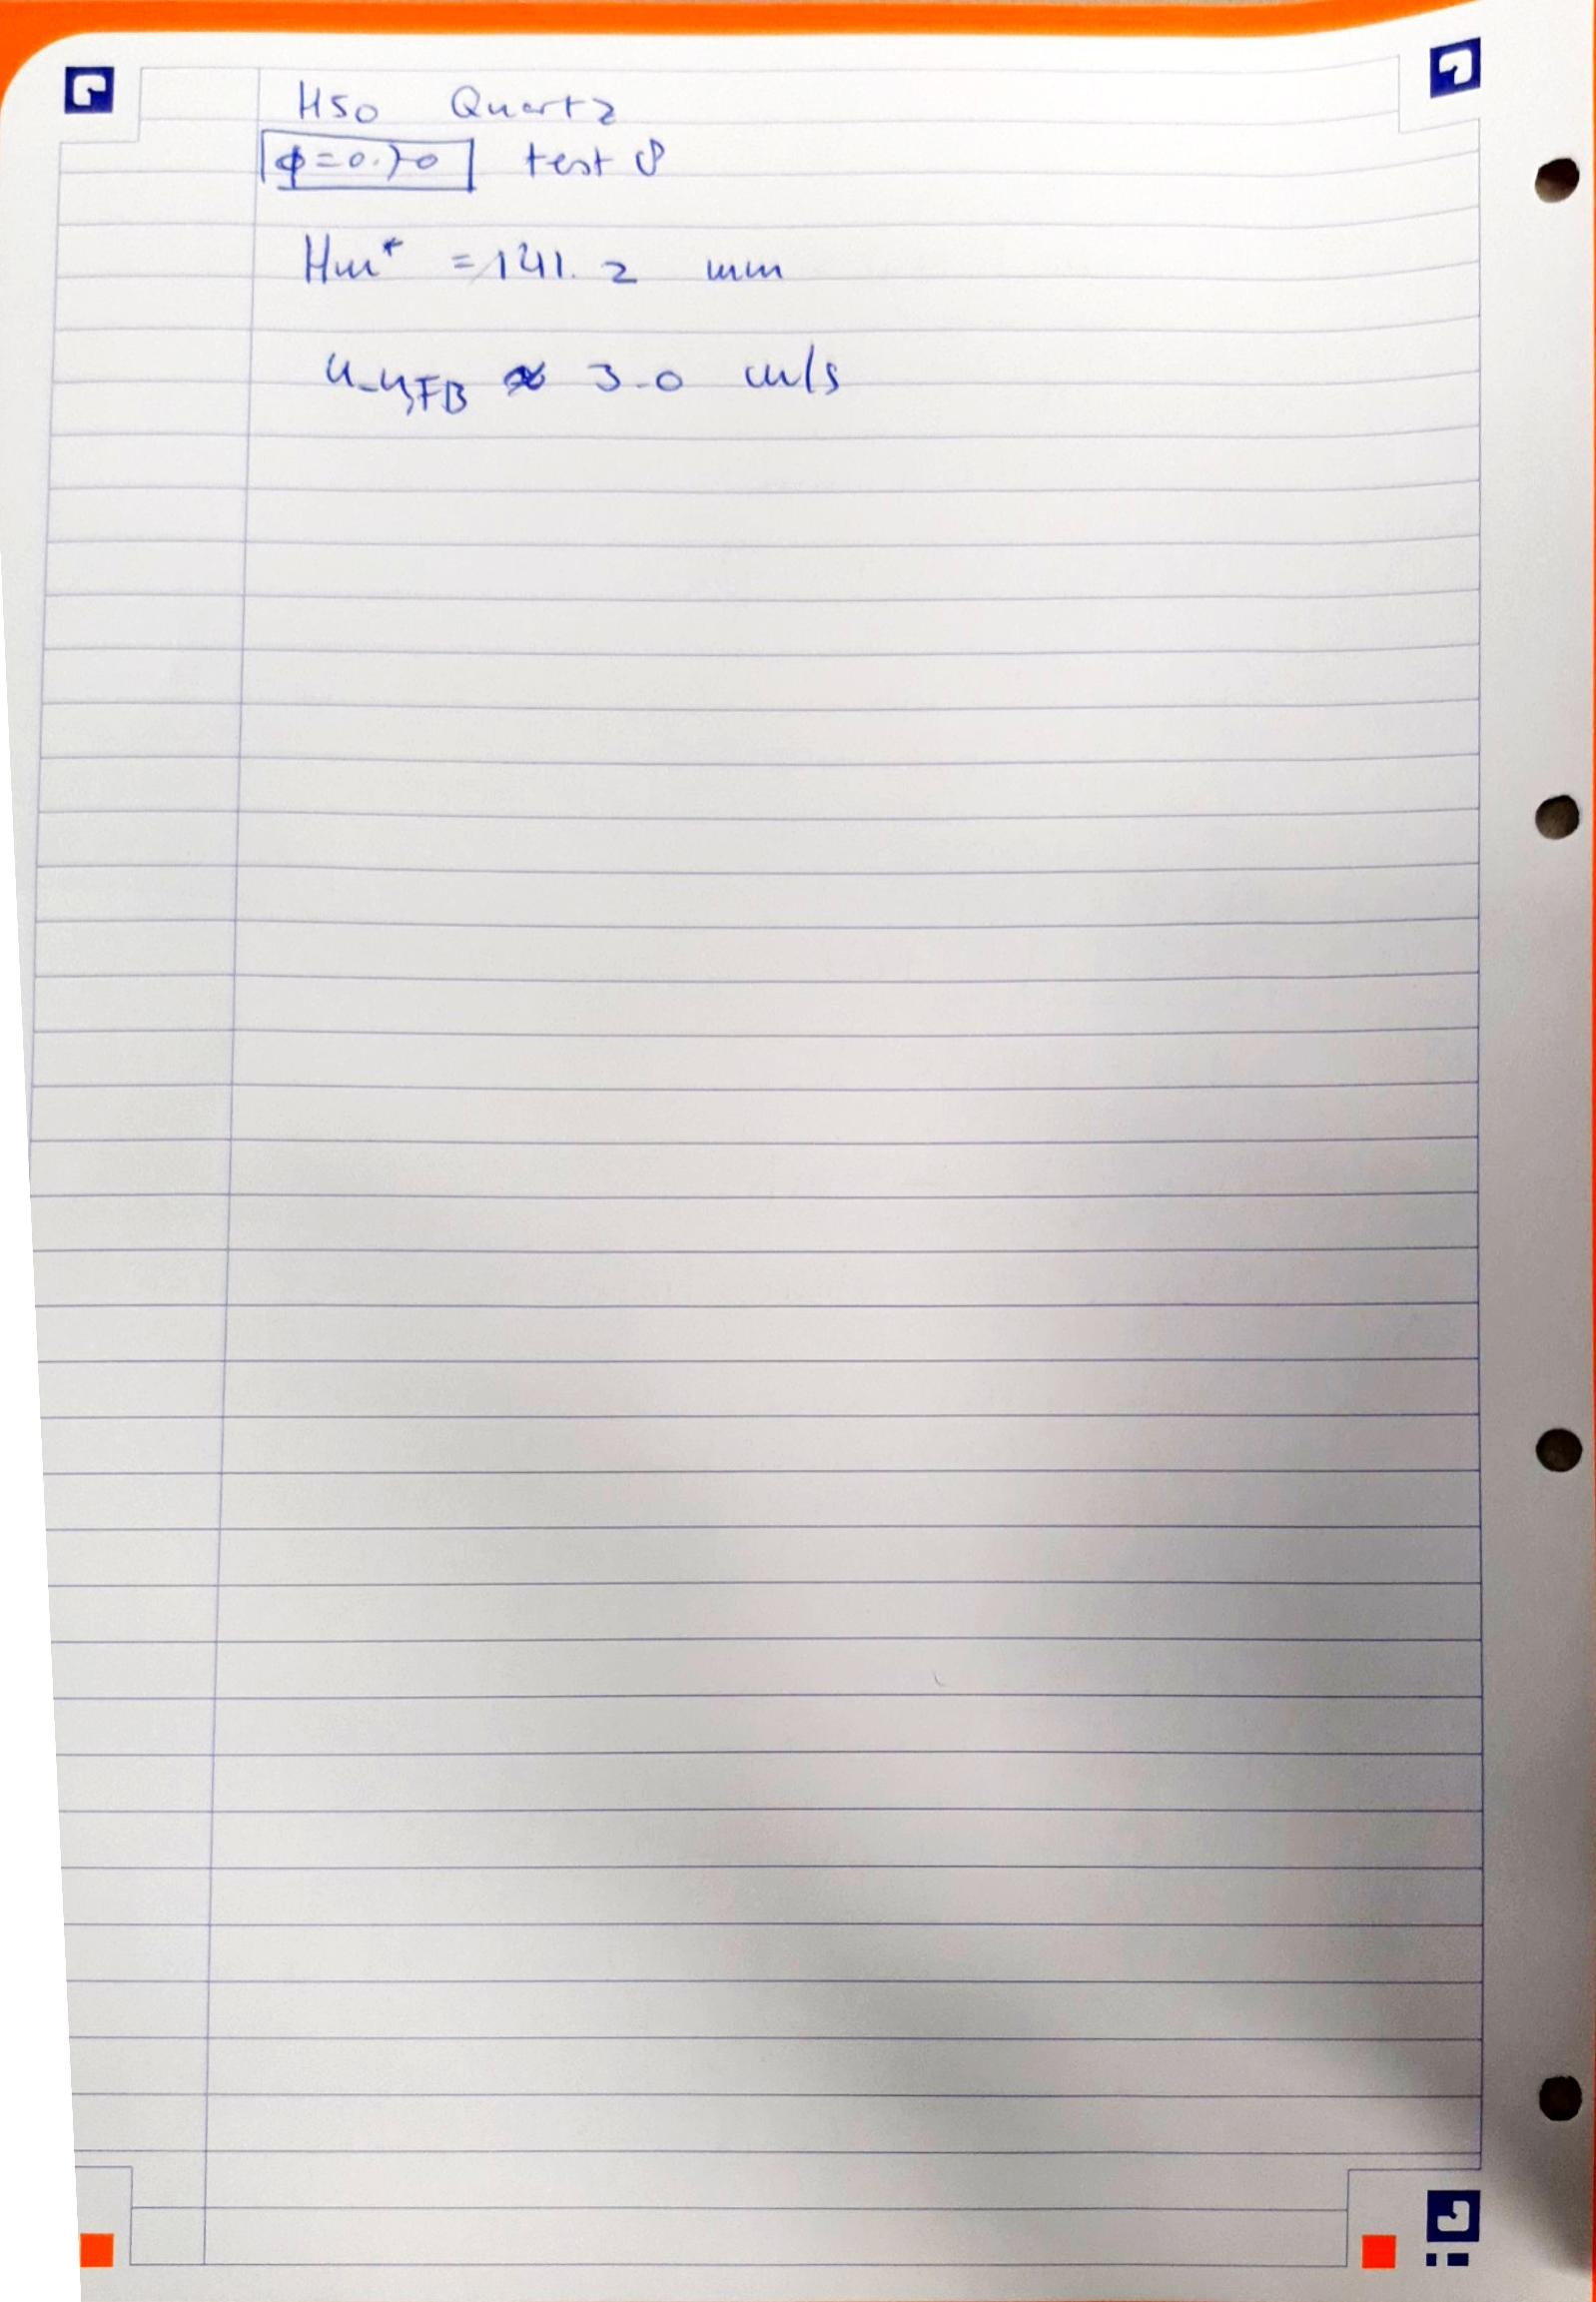 H50 Quartz
ϕ=0.70 test 8
Hm* = 141.2 mm
≈ 3.0 m/s